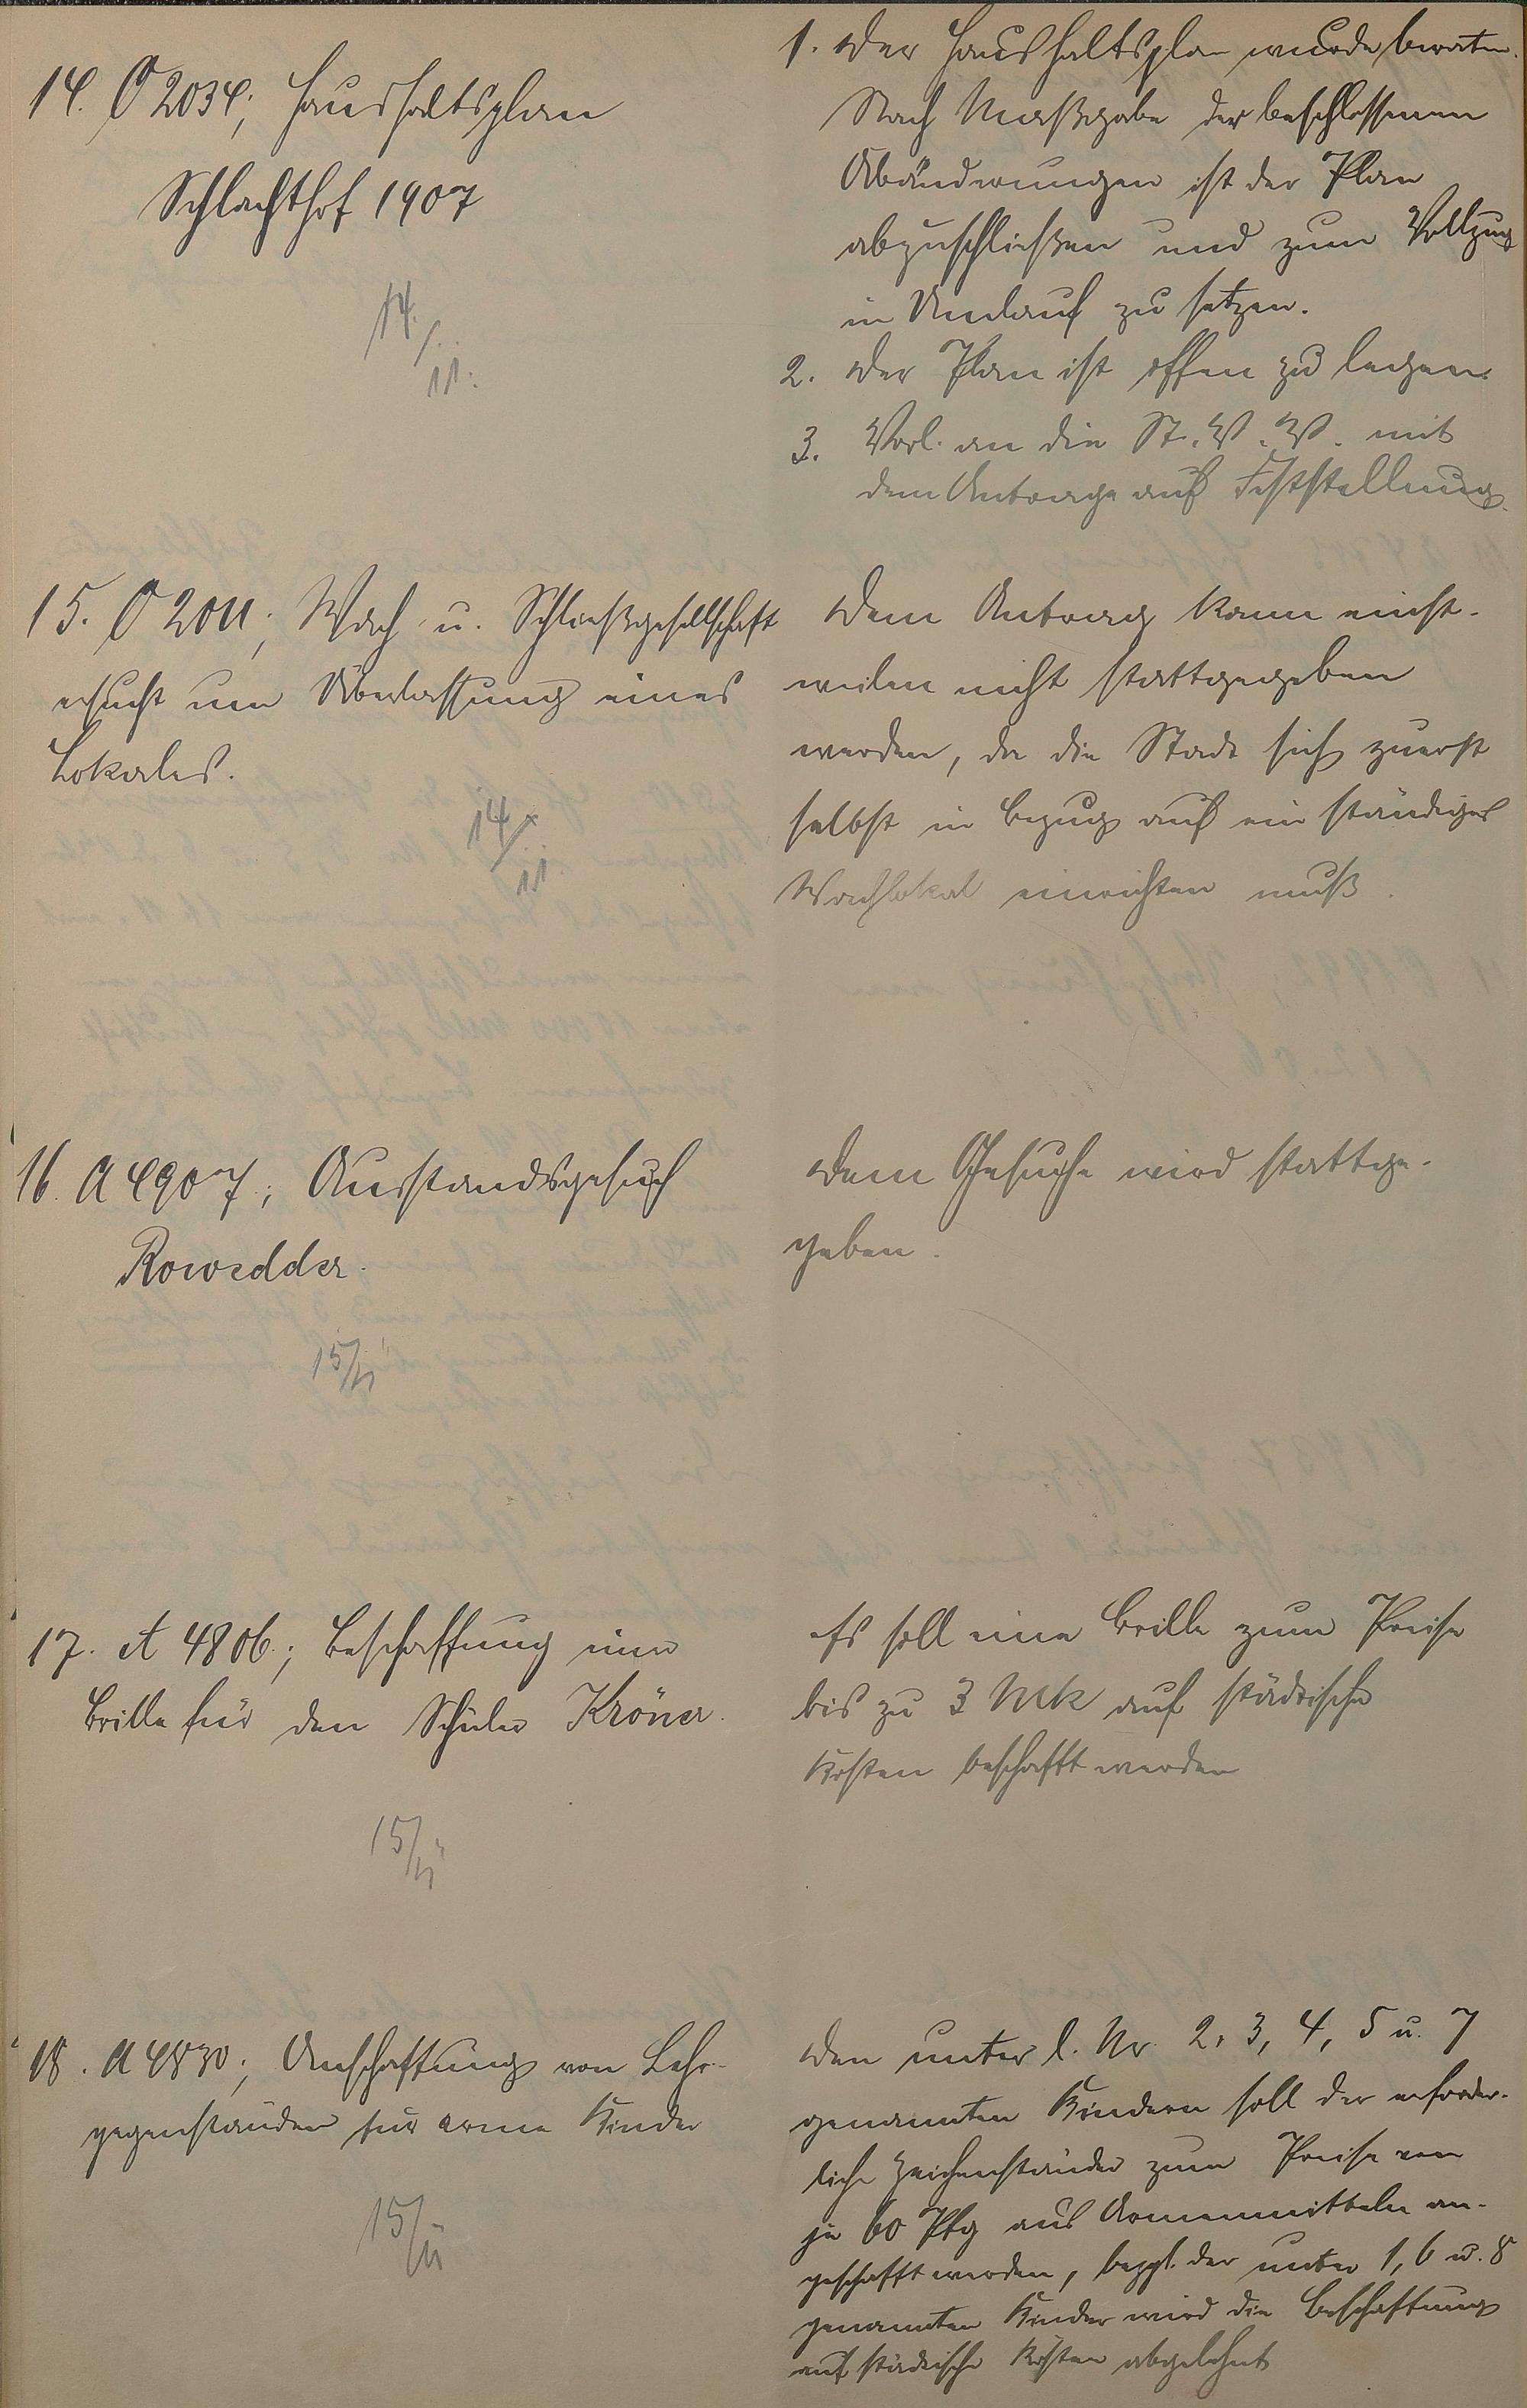 14. O 2034; Haushaltsplan
Schlachthof 1907
14./11.
1. Der Haushaltsplan wurde beraten.
Nach Maßgabe der beschlossenen
Abänderungen ist der Plan
abzuschließen und zum Vollzug
in Umlauf zu setzen.
2. Der Plan ist offen zu legen.
3. Vorl. an die St. V. V. mit
dem Antrage auf Feststellung.
15. O 2011; Wach- u. Schließgesellschaft
ersucht um Überlassung eines
Lokales.
14/11.
Dem Antrag kann einst-
weilen nicht stattgegeben
werden, da die Stadt sich zuerst
selbst in Bezug auf ein ständiges
Wachlokal einrichten muß.
16. A 4907; Ausstandsgesuch
Rowedder.
15/11
Dem Gesuche wird stattge-
geben.
17. A 4806; Beschaffung einer
Brille für den Schüler Kröner.
15/11
Es soll eine Brille zum Preise
bis zu 3 Mk auf städtische
Kosten beschafft werden
18. A 4830; Anschaffung von Lehr-
gegenständen für arme Kinder
15/11
Den unter l. Nr. 2, 3, 4, 5 u. 7
genannten Kindern soll der erforder-
liche Zeichenständer zum Preise von
je 60 Pfg aus Armenmitteln an-
geschafft werden, bezgl. der unter 1, 6 u. 8
genannten Kinder wird die Beschaffung
auf städtische Kosten abgelehnt